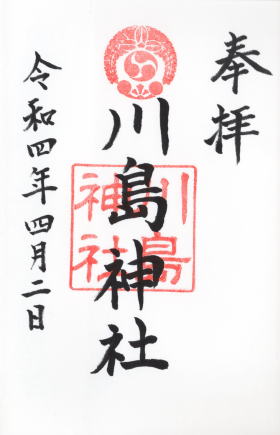 奉拝
川島神社
川島
神社
令和四年四月二日